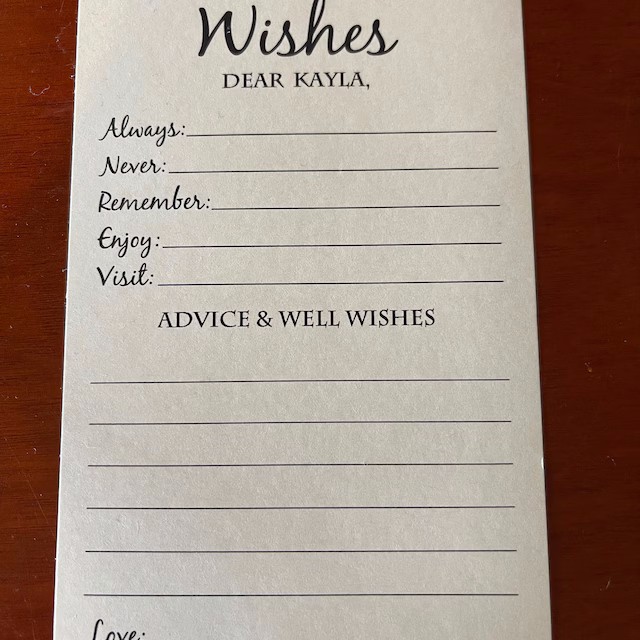 Wishes
DEAR KAYLA,
Always:
Never:
Remember:
Enjoy:
Visit:
ADVICE & WELL WISHES
Love: